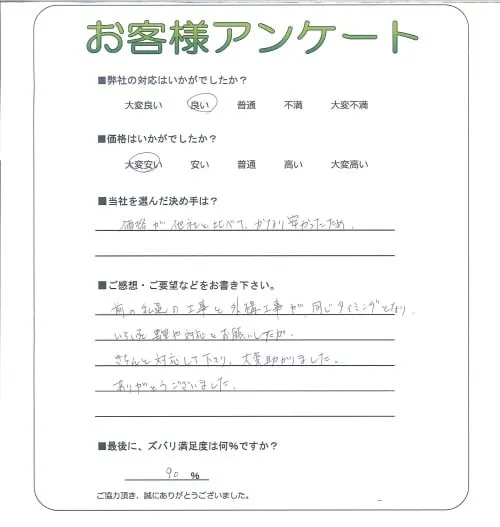 お客様アンケート
■弊社の対応はいかがでしたか？
大変良い 良い 普通 不満 大変不満
■価格はいかがでしたか？
大変安い 安い 普通 高い 大変高い
■当社を選んだ決め手は？
価格が他社と比べて、かなり安かったため。
■ご感想・ご要望などをお書き下さい。
前の私道の工事と外構工事が、同じタイミングとなり、
いろいろ要望や対応をお願いしたが、
きちんと対応して下さり、大変助かりました。
ありがとうございました。
■最後に、ズバリ満足度は何％ですか？
90 ％
ご協力頂き、誠にありがとうございました。